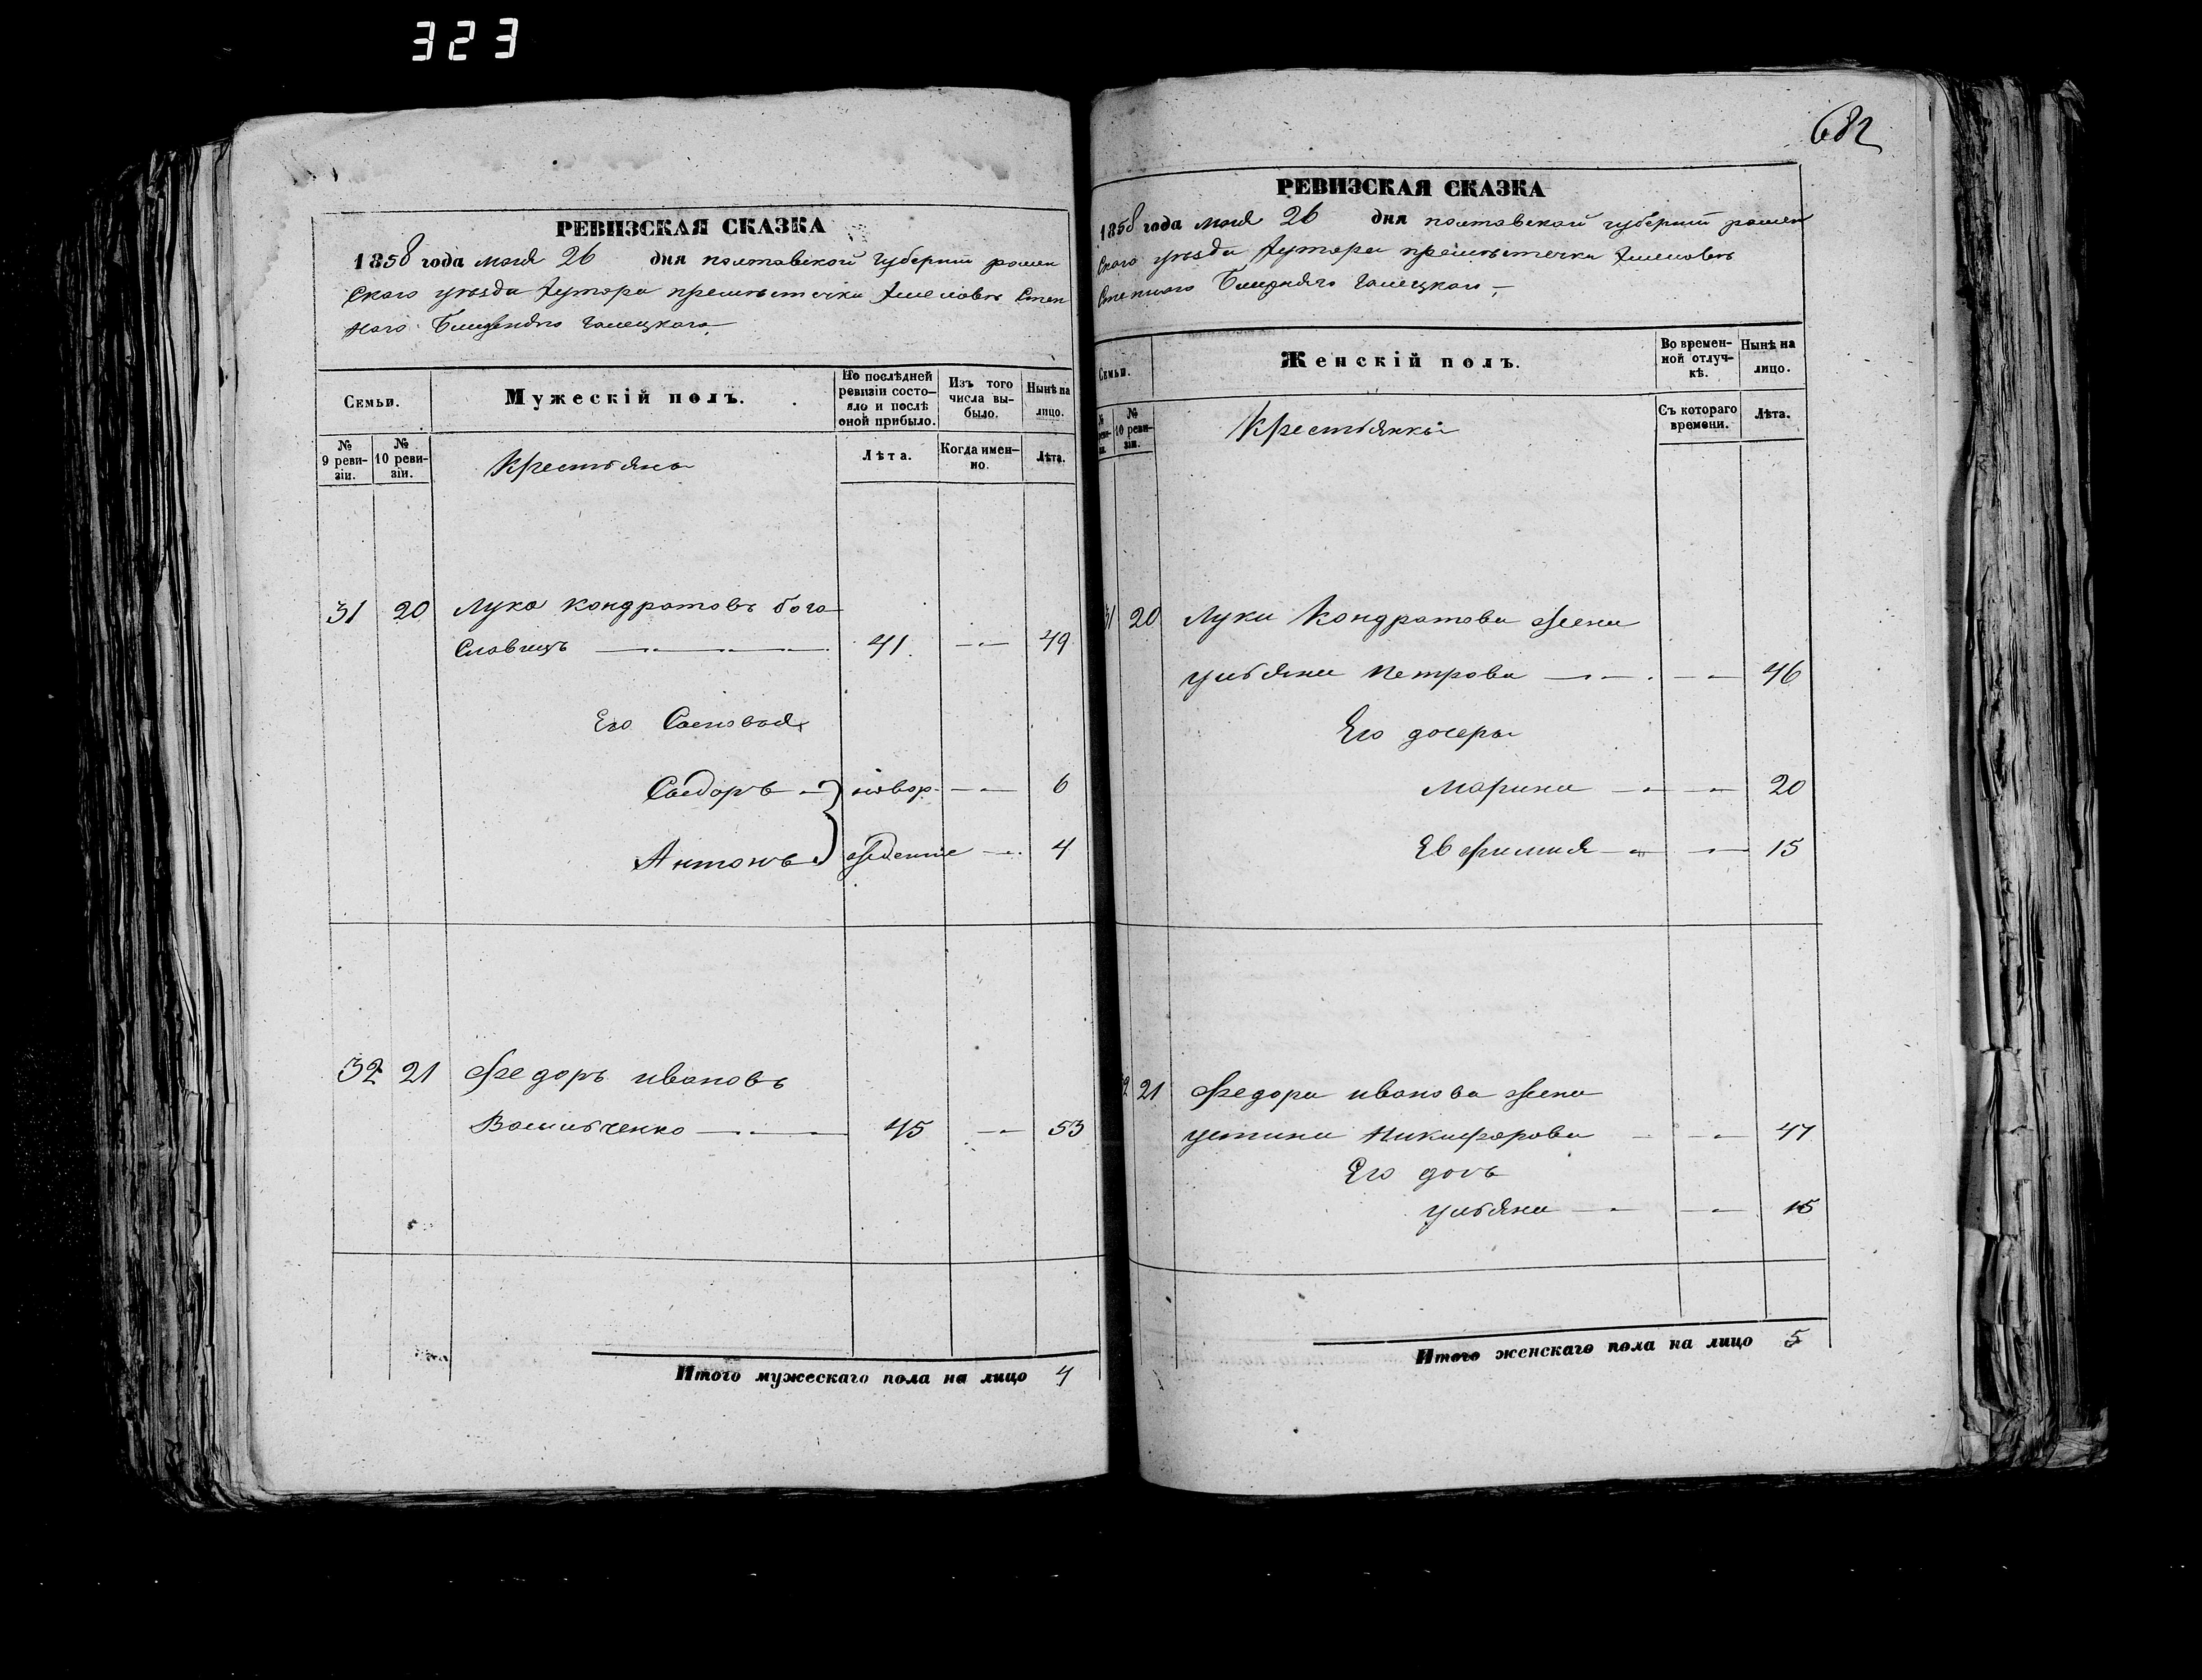 323
682
РЕВИЗСКАЯ СКАЗКА
1858 года мая 26 дня полтавской губернии ромен
ского уезда хутора при местечки Хмелове Степ
ного
Семьи.
Мужескій полъ.
По послѣдней ревизіи состояло и послѣ оной прибыло.
Изъ того числа выбыло.
Нынѣ на лицо.
№ 9 ревизіи.
№ 10 ревизіи.
Крестьяне
Лѣта.
Когда именно.
Лѣта.
31 20 Лука Кондратовъ бого
словецъ 41 49
Его Сыновья
Сидоръ новор 6
Антонъ ождение 4
32 21 Федоръ ивановъ
Васильченко 45 53
Итого мужескаго пола на лицо 4
РЕВИЗСКАЯ СКАЗКА
1858 года мая 26 дня полтавской губернии ромен
ского уезда хутора при местечки Хмелове
Степного
Семьи.
Женскій полъ.
Во временной отлучкѣ.
Нынѣ на лицо.
№ 10 ревизіи.
Крестьянки
Съ котораго времени.
Лѣта.
31 20 Луки Кондратова жена
ульяна Петрова 46
Его дочеры
Марина 20
Евфимия 15
21 Федора иванова жена
устина Никифорова 47
Его дочь
ульяна 15
Итого женскаго пола на лицо 5